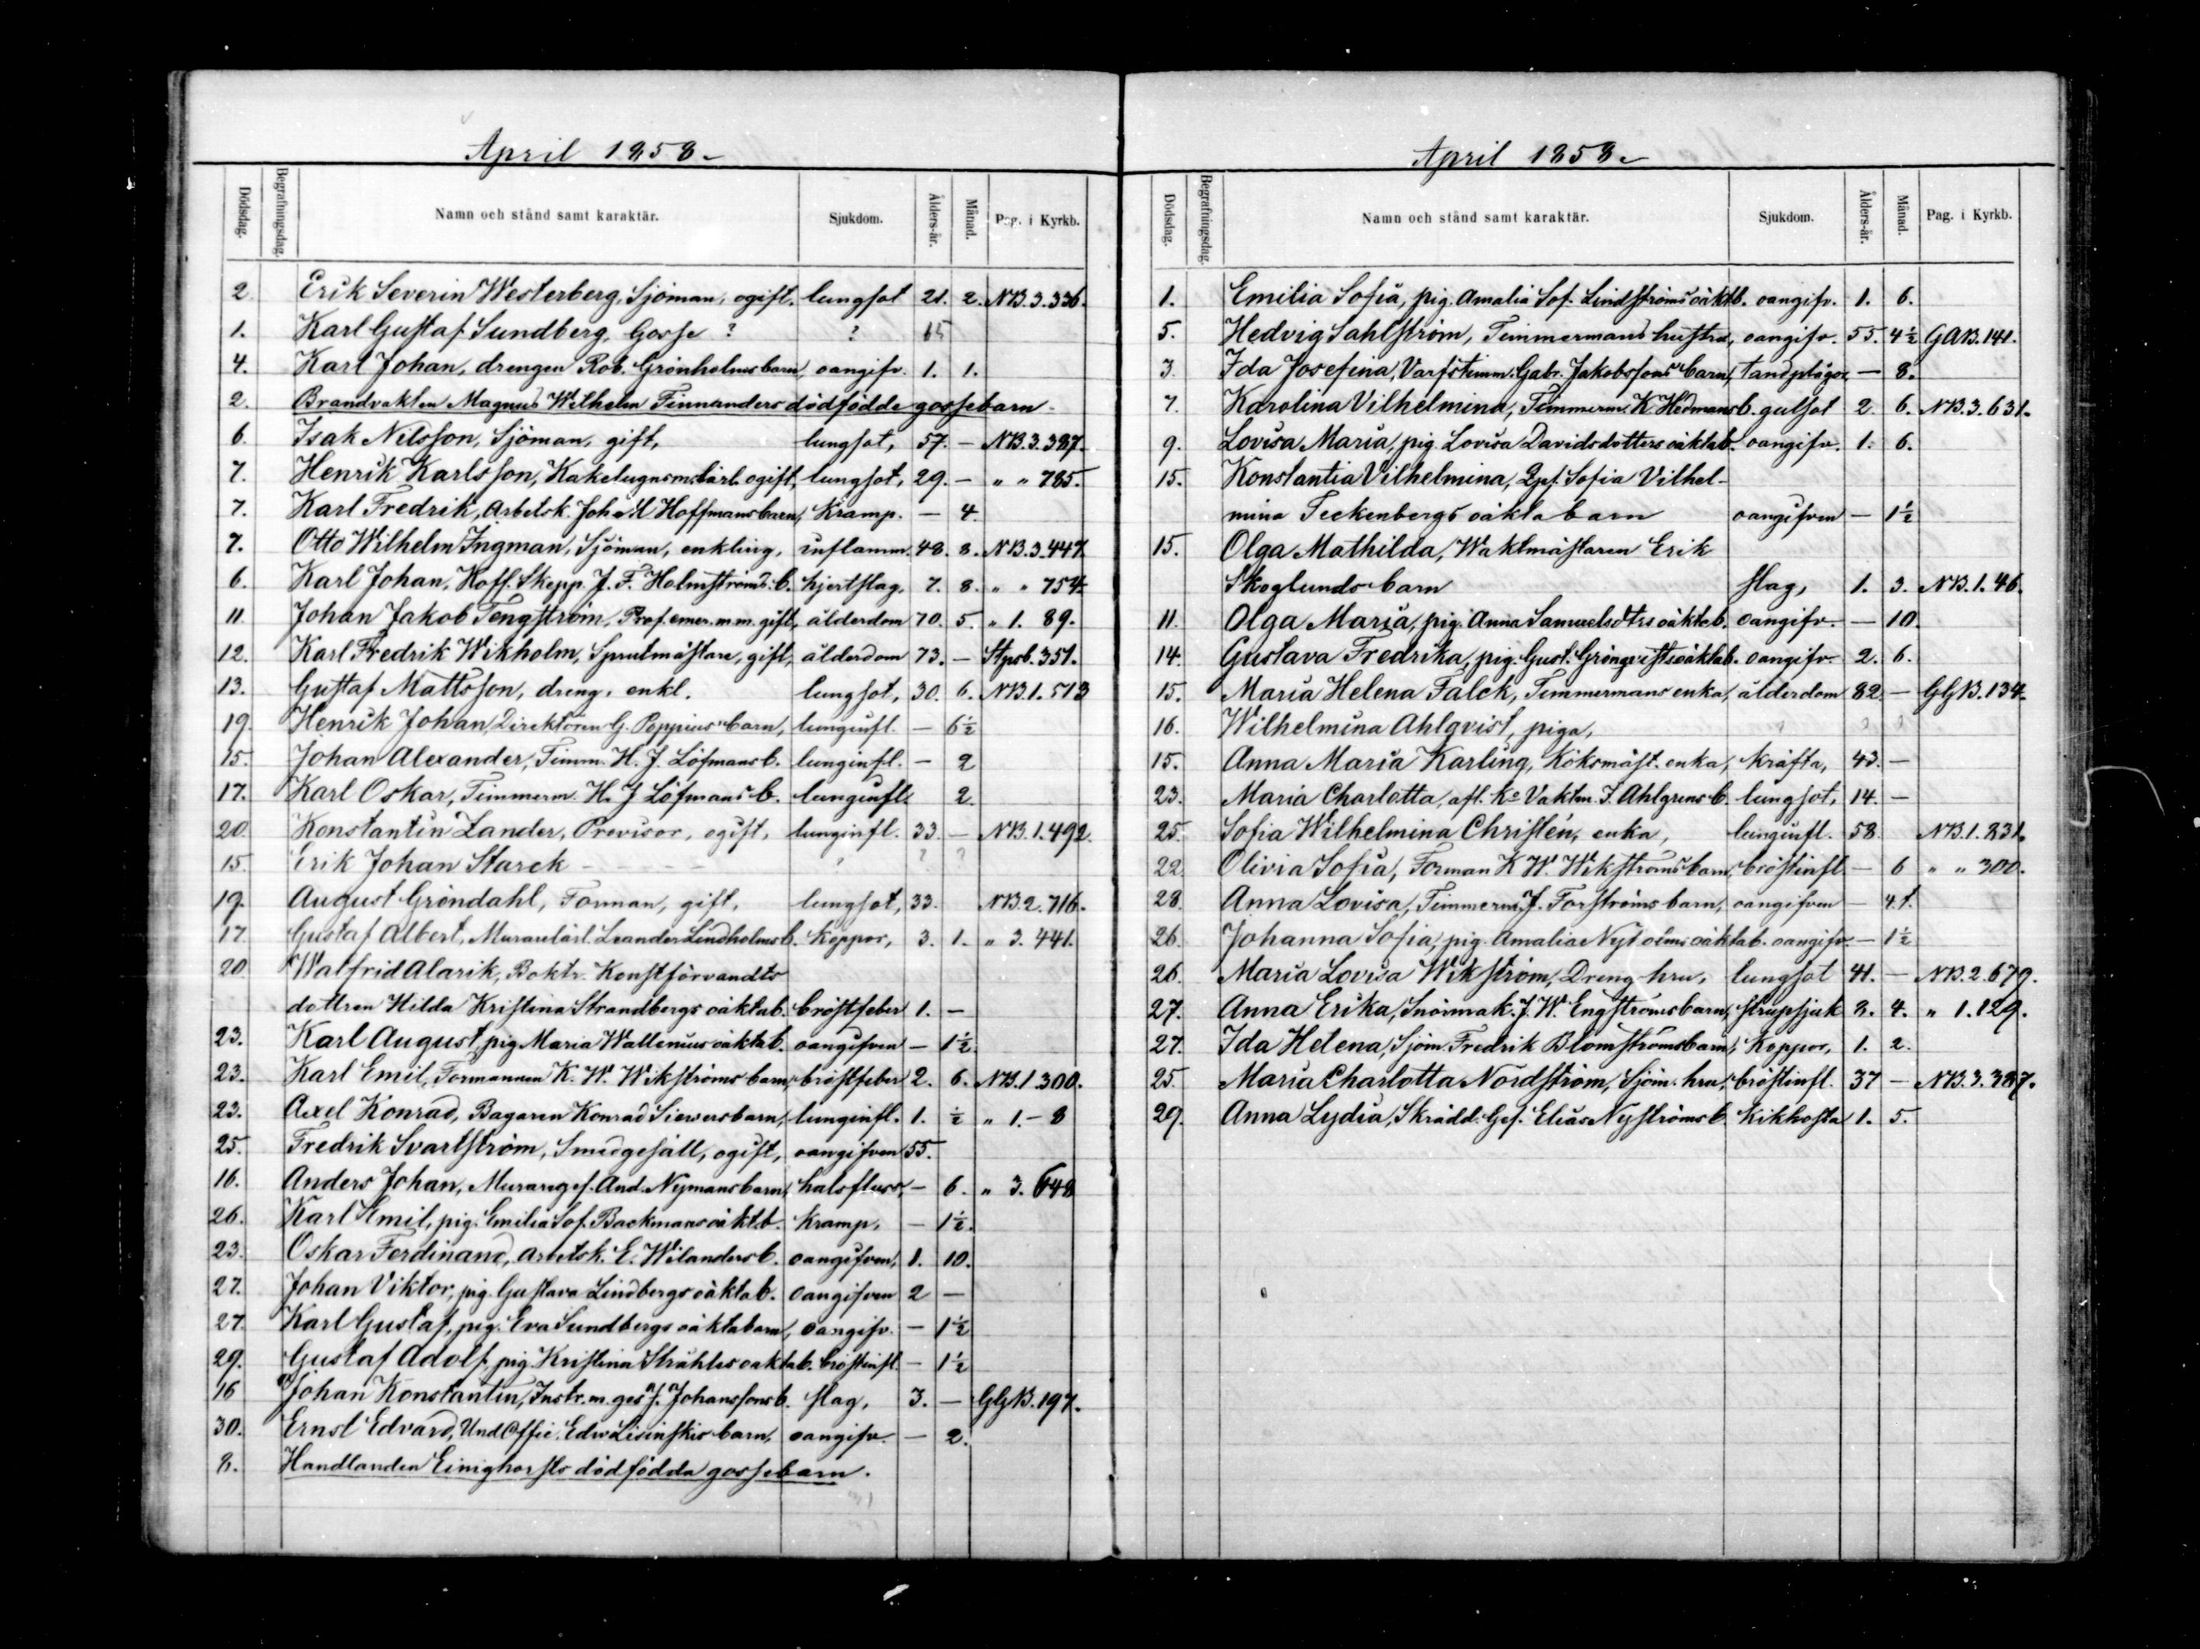 April 1858.
Dödsdag. Begrafningsdag. Namn och stånd samt karaktär. Sjukdom. Ålders-år. Månad. Pag. i Kyrkb.
2. Erik Severin Westerberg, Sjöman, ogift. lungsot 21. 2. NB.3.336.
1. Karl Gustaf Sundberg, Gosse ? ? 15
4. Karl Johan, drengen Rob. Grönholms barn, oangifv. 1. 1.
2. Brandvakten Magnus Wilhelm Finnanders dödfödde gossebarn.
6. Isak Nilsson, Sjöman, gift, lungsot, 57. — NB.3.387.
7. Henrik Karlsson, Kakelugnsm.lärl. ogift, lungsot, 29. — " " 785.
7. Karl Fredrik, Arbetsk. Joh. H Hoffmans barn, Kramp. — 4.
7. Otto Wilhelm Ingman, Sjöman, enkling, inflamm. 48. 8. NB.3.447.
6. Karl Johan, Koff. Skepp. J. F. Holmströms b. hjertslag, 7. 8. " " 754.
11. Johan Jakob Tengström, Prof. emer. m.m. gift, ålderdom 70. 5. " 1. 89.
12. Karl Fredrik Wikholm, Sprutmästare, gift, ålderdom 73. — Stpsb. 351.
13. Gustaf Mattsson, dreng, enkl. lungsot, 30. 6. NB.1.513
19. Henrik Johan, Direktören G. Poppius barn, lunginfl. — 6½
15. Johan Alexander, Timm. H. J. Löfmans b. lunginfl. — 2
17. Karl Oskar, Timmerm. H. J Löfmans b. lunginfl. 2.
20. Konstantin Zander, Provisor, ogift, lunginfl. 33. — NB.1.492.
15. Erik Johan Starck — ? ? ?
19. August Gröndahl, Forman, gift, lungsot, 33. NB.2.716.
17. Gustaf Albert, Murarelärl. Leander Lindholms b. Koppor, 3. 1. " 3. 441.
20. Walfrid Alarik, Boktr. Konstförvandts
dottren Hilda Kristina Strandbergs oäkta b. bröstfeber 1. —
23. Karl August, pig. Maria Wallenius oäkta b. oangifven — 1½.
23. Karl Emil, Formannen K. W. Wikströms barn, bröstfeber 2. 6. NB.1.300.
23. Axel Konrad, Bagaren Konrad Siewers barn, lunginfl. 1. ½ " 1. — 8
25. Fredrik Svartström, Smedgesäll, ogift, oangifven 55.
16. Anders Johan, Murareges. And. Nymans barn, halsfluss, — 6. " 3. 648
26. Karl Emil, pig. Emilia Sof. Backmans oäkta b. Kramp, — 1½.
23. Oskar Ferdinand, Arbetsk. E. Wilanders b. oangifven, 1. 10.
27. Johan Viktor, pig. Gustava Lindbergs oäkta b. oangifven 2 —
27. Karl Gustaf, pig. Eva Sundbergs oäkta barn, oangifv. — 1½
29. Gustaf Adolf, pig. Kristina Ståhles oäkta b. bröstinfl. — 1½
16 Johan Konstantin, Instr. m. ges. J. Johanssons b. slag, 3. — GGB.197.
30. Ernst Edvard, Und Offic. Edv. Lisinskis barn, oangifv. — 2.
8. Handlanden Einighorsts dödfödda gossebarn.
April 1858.
Dödsdag. Begrafningsdag. Namn och stånd samt karaktär. Sjukdom. Ålders-år. Månad. Pag. i Kyrkb.
1. Emilia Sofia, pig. Amalia Sof. Lindströms oäkta b. oangifv. 1. 6.
5. Hedvig Sahlström, Timmermans hustru, oangifv. 55. 4½ GAB.141.
3. Ida Josefina, Varfstimm. Gabr. Jakobssons barn, tandplågor, — 8.
7. Karolina Vilhelmina, Timmerm. K Hedmans b. gulsot 2. 6. NB.3.631.
9. Lovisa Maria, pig. Lovisa Davidsdotters oäkta b. oangifv. 1. 6.
15. Konstantia Vilhelmina, Qpf. Sofia Vilhel-
mina Teckenbergs oäkta barn oangifven — 1½
15. Olga Mathilda, Waktmästaren Erik
Skoglunds barn slag, 1. 3. NB.1.46.
11. Olga Maria, pig. Anna Samuelsdtrs oäkta b. oangifv. — 10.
14. Gustava Fredrika, pig. Gust. Grönqvists oäkta b. oangifv. 2. 6.
15. Maria Helena Falck, Timmermans enka, ålderdom 82. — GGB.134.
16. Wilhelmina Ahlqvist, piga, ? ? ?
15. Anna Maria Karling, Köksmäst. enka, kräfta, 43. —
23. Maria Charlotta, afl. Ke Vaktm. J. Ahlgrens b. lungsot, 14. —
25. Sofia Wilhelmina Christén, enka, lunginfl. 58. NB.1.831.
22. Olivia Sofia, Forman K W. Wikströms barn, bröstinfl — 6 " " 300.
28. Anna Lovisa, Timmerm. J. Forströms barn, oangifven — 4 t.
26. Johanna Sofia, pig. Amalia Nyholms oäkta b. oangifv. — 1½
26. Maria Lovisa Wikström, Dreng hru, lungsot 41. — NB.2.679.
27. Anna Erika, Snörmak. J. W. Engströms barn, strupsjuk 2. 4. " 1. 129.
27. Ida Helena, Sjöm. Fredrik Blomströms barn, Koppor, 1. 2.
25. Maria Charlotta Nordström, Sjöm. hru, bröstinfl. 37 — NB.3.387.
29. Anna Lydia, Skrädd. Ges. Elias Nyströms b. Kikhosta 1. 5.